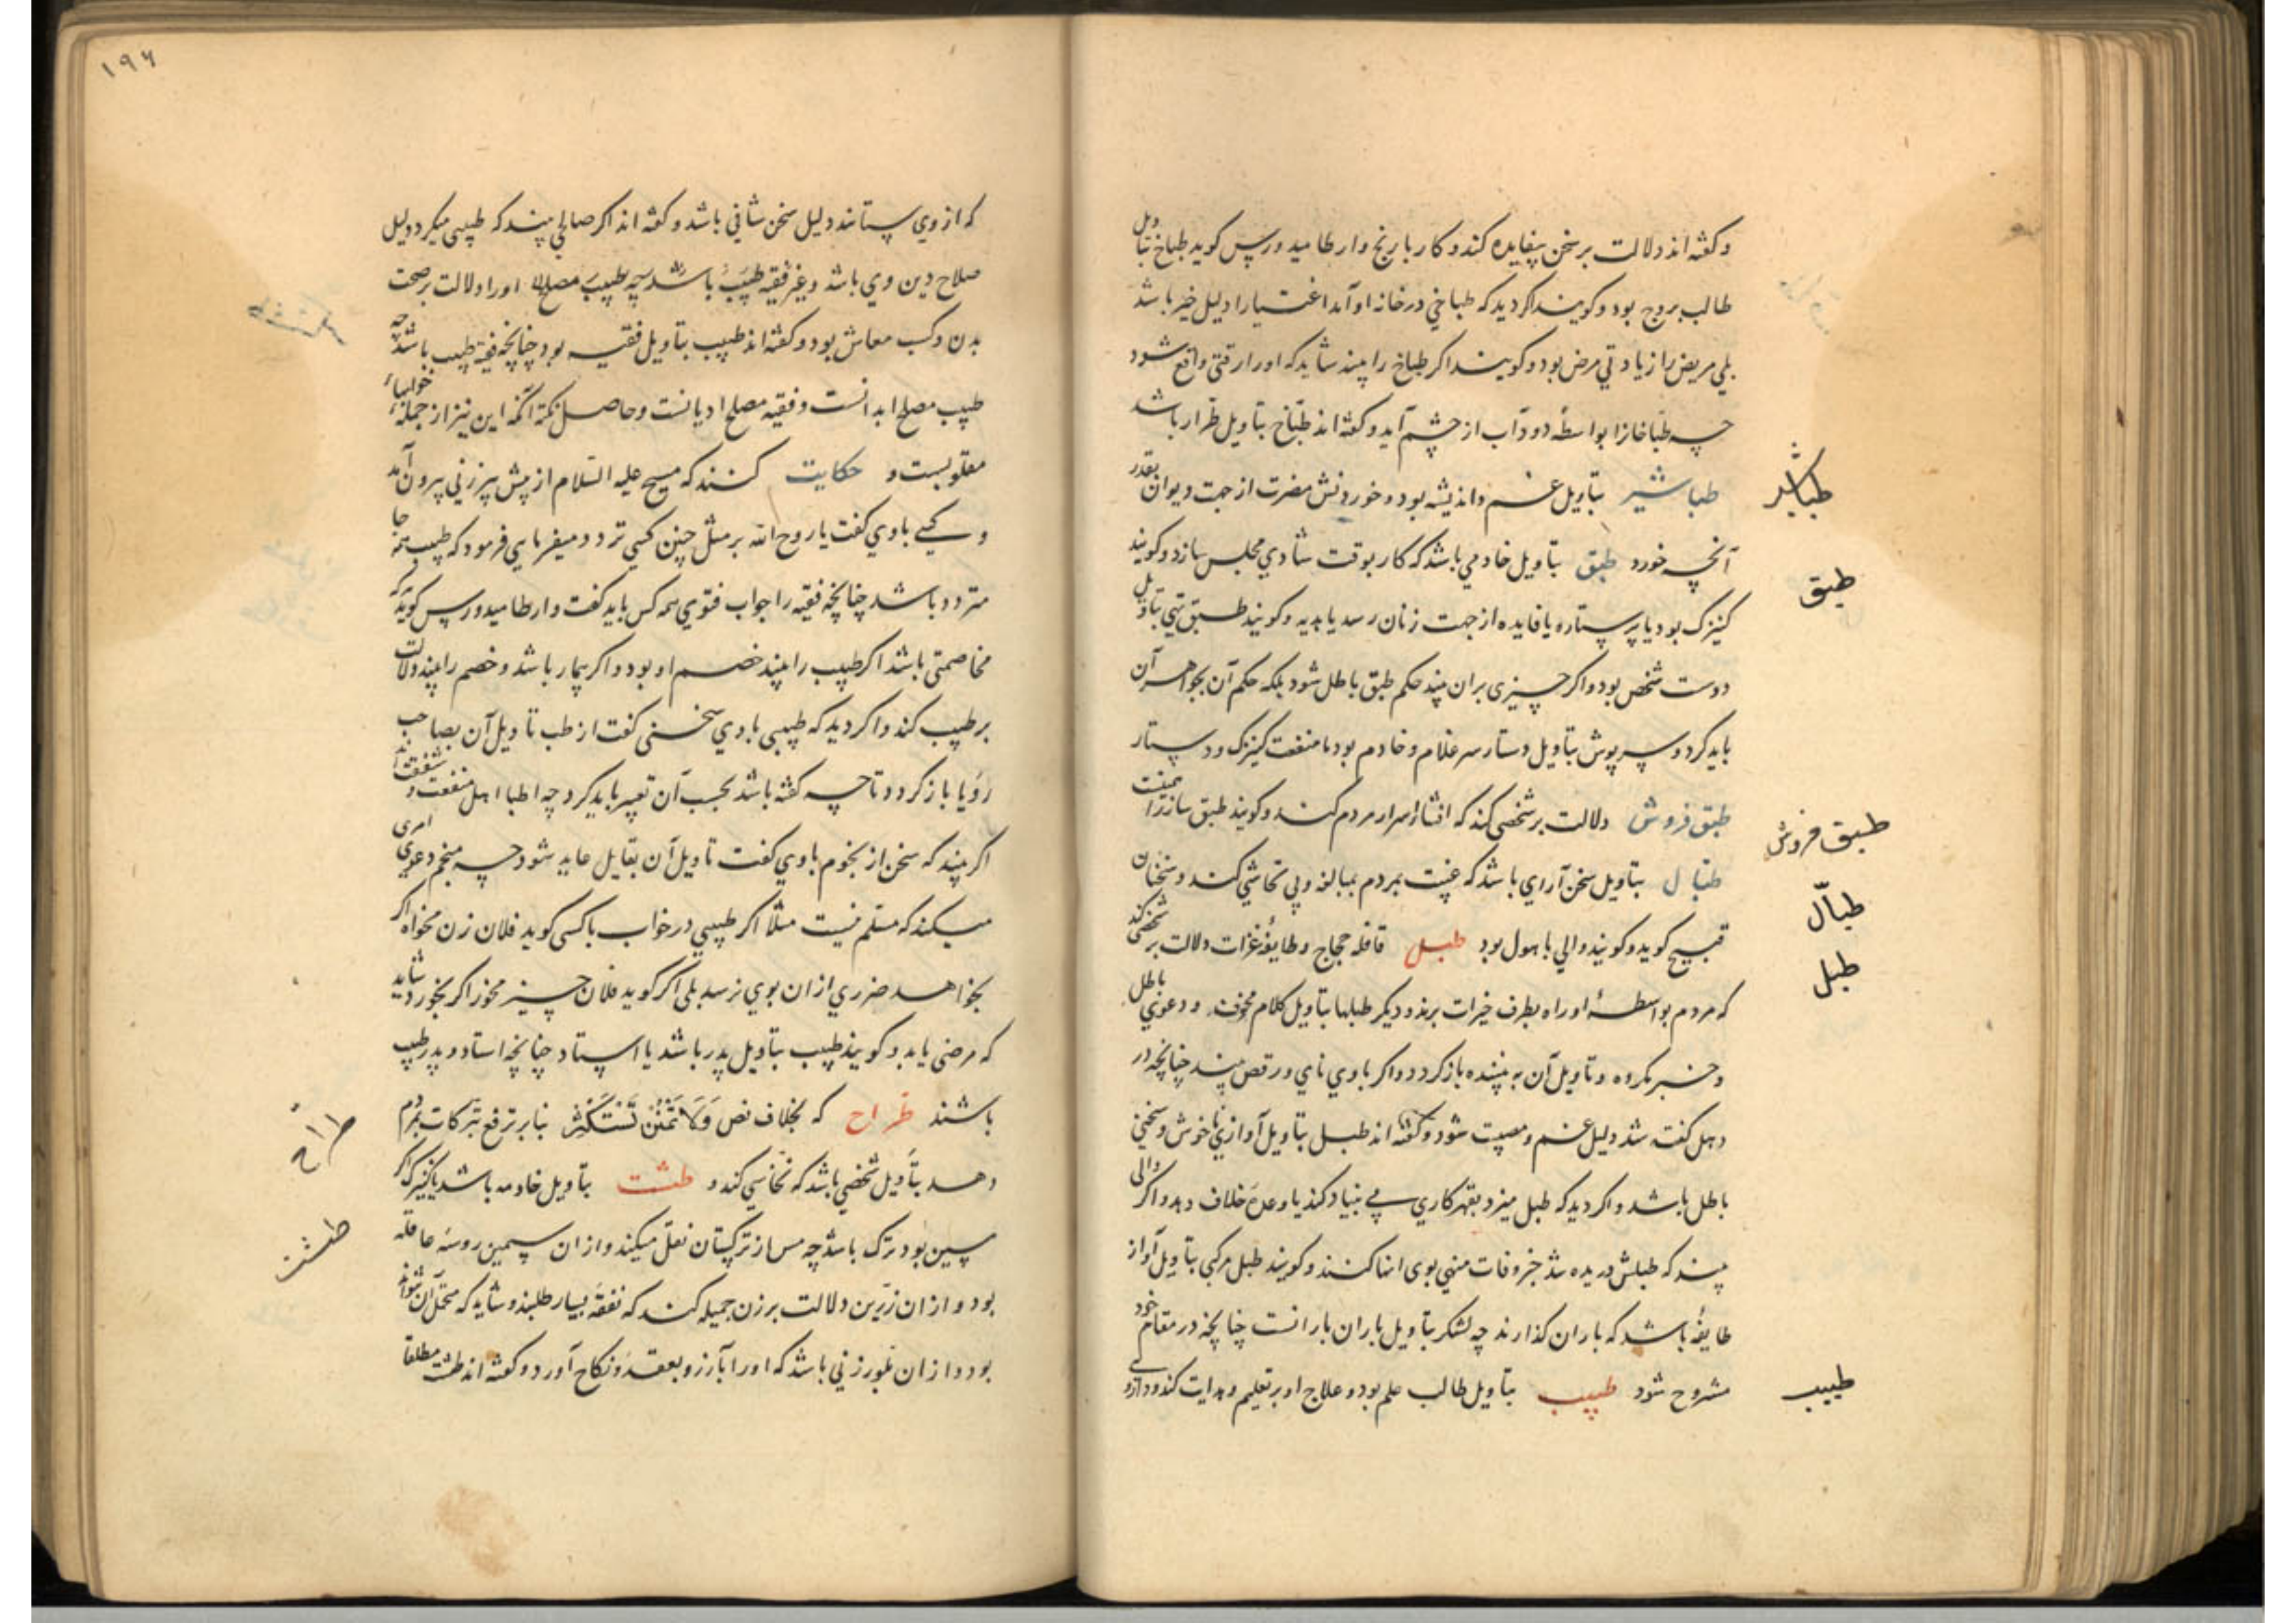 و گفته‌اند دلالت بر سخن بیفایده کند و کار با رنج وارطامیدورس گوید طباخ بتاویل
طالب بروج بود و گویند اگر دید که طباخی در خانه او آمد اغنیا را دلیل خیر باشد
بلی مریض را زیادتی مرض بود و گویند اگر طباخ را بیند شاید که او را رقتی واقع شود
چه طباخانرا بواسطهٔ دود آب از چشم آید و گفته‌اند طبّاخ بتاویل طرّار باشد
طباشیر
طباشیر بتاویل غم و اندیشه بود و خوردنش مضرت از جهت دیوان بقدر
آنچه خورد طبق بتاویل خادمی باشد که کار بوقت شادی مجلس سازد و گویند
طبق
کنیزک بود یا پرستاره یا فایده از جهت زنان رسد یا هدیه و گویند طبق تهی بتاویل
دوست شخص بود و اگر چیزی بران بیند حکم طبق باطل شود بلکه حکم آن بجواهر آن
باید کرد و سرپوش بتاویل دستار سر غلام و خادم بود یا منفعت کنیزک و دستار
طبق فروش دلالت بر شخصی کند که افشاء اسرار مردم کند و گویند طبق ساز را
طبق فروش
طبّال بتاویل سخن آرای باشد که غیبت مردم بمبالغه و بی تحاشی کند و سخنان
طبّال
قبیح گوید و گویند والی با هول بود طبل قافله حجاج و طایفهٔ غزات دلالت بر شخصی کند
طبل
که مردم بواسطهٔ او راه بطرف خیرات برند و دیگر طبلها بتاویل کلام و دعوی باطل
و خبر مکروه و تاویل آن به بیننده باز گردد و اگر با وی نای و رقص بیند چنانچه در
دهل گفته شد دلیل غم و مصیبت شود و گفته‌اند طبل بتاویل آوازی ناخوش و سخنی
باطل باشد و اگر دید که طبل میزد بقهر کاری بی بنیاد کند یا وعدهٔ خلاف دهد و اگر والی
بیند که طبلش دریده شد خبر وفات منهی بوی انها کنند و گویند طبل مرکبی بتاویل آواز
طایفهٔ باشد که باران گذارند چه لشکر بتاویل باران بارانست چنانچه در مقام خود
مشروح شود طبیب بتاویل طالب علم بود و علاج او بر تعلیم و هدایت کند و داروی
طبیب
۱۹۶
که از وی ستانند دلیل سخن شافی باشد و گفته‌اند اگر صالحی بیند که طبیبی میکرد دلیل
صلاح دین وی باشد و غیر فقیه طبیب باشد چه طبیب مصلح او را دلالت بر صحت
بدن و کسب معاش بود و گفته‌اند طبیب بتاویل فقیه بود چنانچه فقیه طبیب باشد چه
طبیب مصلح ابدانست و فقیه مصلح ادیانست و حاصل نکته آنکه این نیز از جمله خوابهاء
مقلوبست و حکایت کنند که مسیح علیه السلام از پیش پیر زنی بیرون آمد
و کسی با وی گفت یا روح الله بر مثل چنین کسی تردد میفرمایی فرمود که طبیب همه جا
متردد باشد چنانچه فقیه را جواب فتوی همه کس باید گفت وارطامیدورس گوید که
مخاصمتی باشد اگر طبیب را بیند خصم او بود و اگر بیمار باشد و خصم را بیند دلالت
بر طبیب کند و اگر دید که طبیبی با وی سخنی گفت از طب تاویل آن بصاحب
رؤیا باز گردد تا چه گفته باشد بحسب آن تعبیر باید کرد چه اطبا اهل منفعت و شفقت‌اند
اگر بیند که سخن از نجوم با وی گفت تاویل آن بقایل عاید شود چه منجم دعوی امری
میکند که مسلم نیست مثلا اگر طبیبی در خواب با کسی گوید فلان زن مخواه اگر
بخواهد ضرری از ان بوی نرسد بلی اگر گوید فلان چیز مخور اگر بخورد شاید
که مرضی یابد و گویند طبیب بتاویل پدر باشد یا استاد چنانچه استاد و پدر طبیب
باشند طرّاح که بخلاف نص وَلَا تَمْنُنْ تَسْتَكْثِرُ بنا بر ترفع تبرکات بمردم
طراح
دهد بتاویل شخصی باشد که نخاسی کند و طشت بتاویل خادمه باشد یا کنیزک اگر
طشت
مسین بود ترک باشد چه مس از ترکستان نقل میکنند و از ان سیمین روسه عاقله
بود و از ان زرّین دلالت بر زن جمیله کند که نفقه بسیار طلبد و شاید که متحمل آن نتواند
بود و از ان بلور زنی باشد که او را بآرزو بعقد و نکاح آورد و گفته‌اند طشت مطلقا